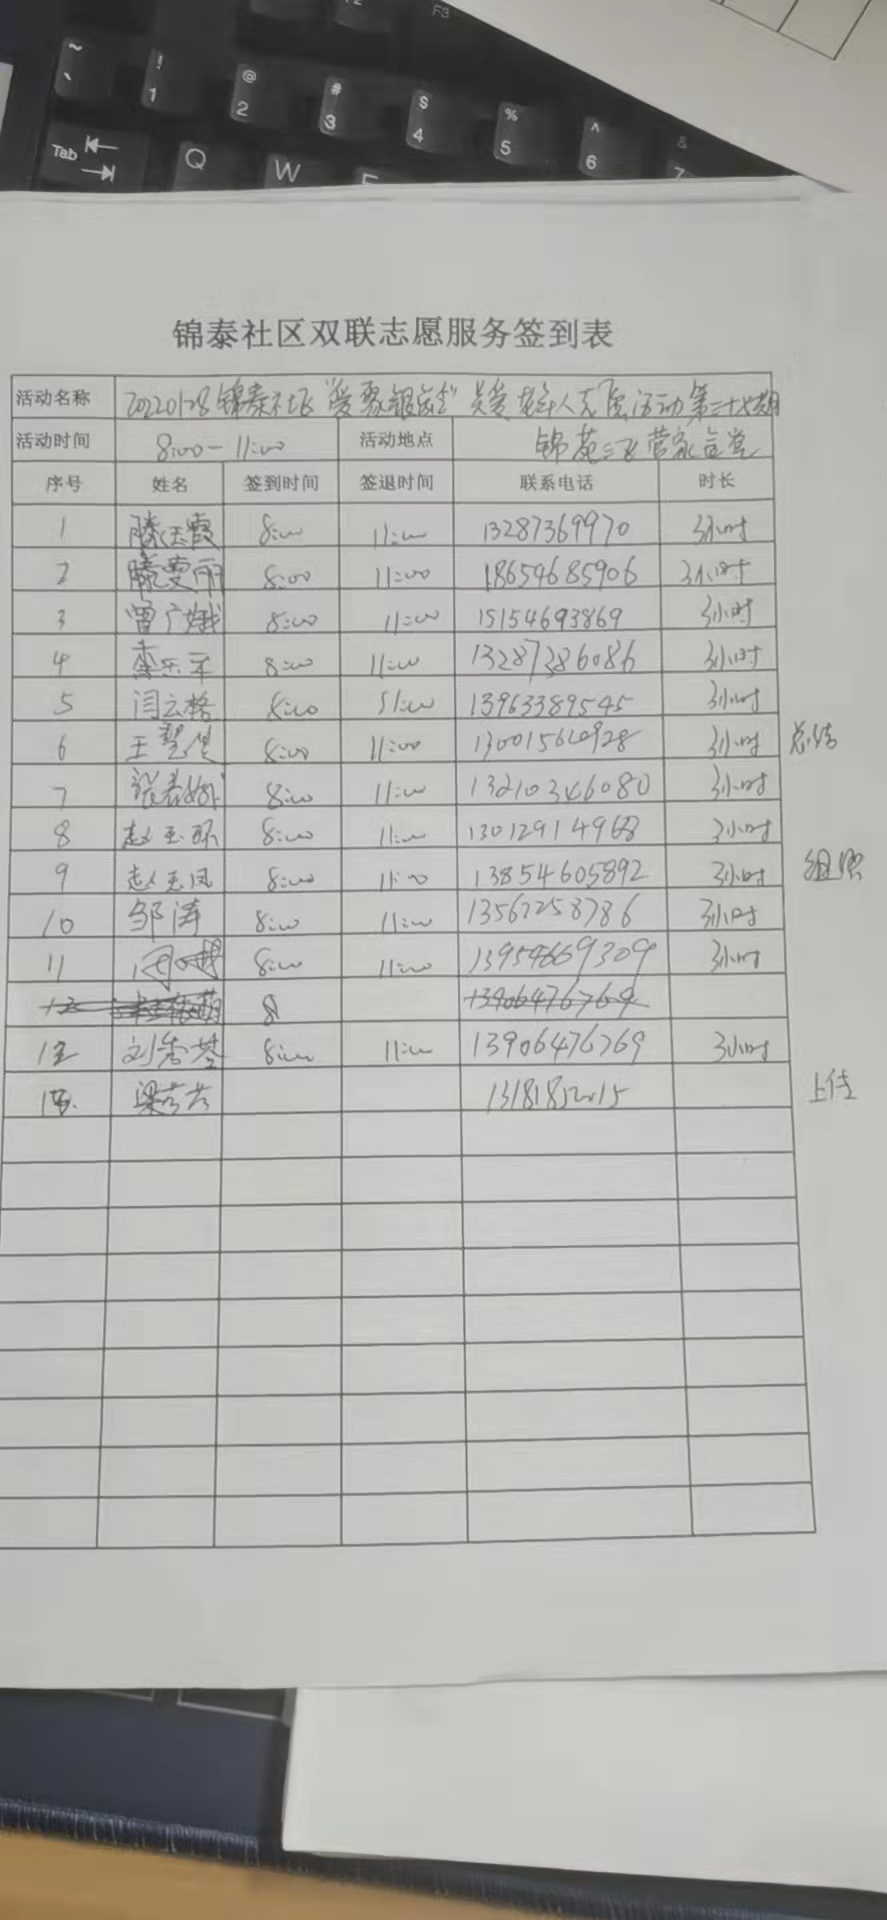 F3
~ ` ! 1 @ 2 # 3 $ 4 % 5 ^ 6 & 7
Tab Q W
锦泰社区双联志愿服务签到表
活动名称 20220128锦泰社区"爱聚银龄" 关爱老年人志愿活动第二十七期
活动时间 8:00-11:00 活动地点 锦苑三区营家食堂
序号 姓名 签到时间 签退时间 联系电话 时长
1 滕玉霞 8:00 11:00 13287369970 3小时
2 滕雯丽 8:00 11:00 18654685906 3小时
3 曾广娥 8:00 11:00 15154693869 3小时
4 8:00 11:00 13287386086 3小时
5 闫云格 8:00 11:00 13963389545 3小时
6 8:00 11:00 13001560928 3小时 总结
7 张春娥 8:00 11:00 13210346080 3小时
8 赵玉环 8:00 11:00 13012914968 3小时
9 赵玉凤 8:00 11:00 13854605892 3小时 组织
10 邹涛 8:00 11:00 13567258786 3小时
11 8:00 11:00 13954669309 3小时
12 8 13906476769
12 刘秀芬 8:00 11:00 13906476769 3小时
13181852015 上传